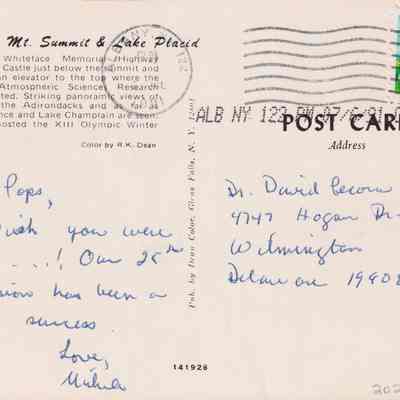 Mt. Summit & Lake Placid
Whiteface Memorial Highway
Castle just below the summit and
an elevator to the top where the
Atmospheric Sciences Research
ted. Striking panoramic views of
the Adirondacks and as far as
ence and Lake Champlain are seen.
hosted the XIII Olympic Winter
Color by R.K. Dean
Pops,
wish you were
....! Our 25th
sion has been a
success.
Love,
Pub. by Dean Color, Glens Falls, N.Y. 12801
141926
ALBANY
ALB NY 122 PM 07/6/91
POST CARD
Address
Dr. David
4747 Hogan Dr
Wilmington
Delaware 19808
202